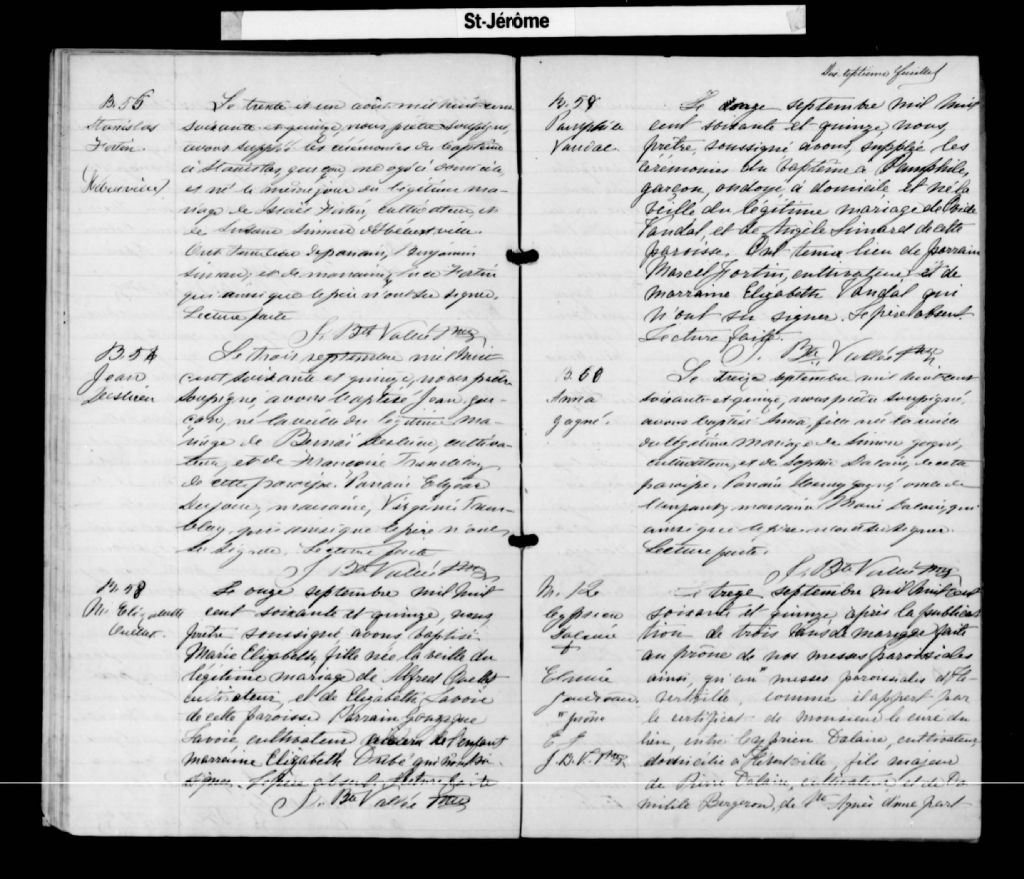 St-Jérôme
B. 56
Stanislas
Fortin
(Hébertville)
Le trente et un août mil huit cent
soixante et quinze, nous prêtre soussigné,
avons suppléé les cérémonies du baptême
à Stanislas, garçon, né à domicile,
et né le même jour du légitime ma-
riage de Fortin, cultivateur, et
de Suzanne Simard d'Hébertville.
Ont tenu lieu de parrain, Benjamin
Simard, et de marraine, Fortin
qui ainsi que le père n'ont su signer.
Lecture faite
J. Bte Vallée Ptre
B. 57
Jean
Le trois septembre mil huit
cent soixante et quinze, nous prêtre
soussigné, avons baptisé Jean, gar-
çon, né la veille du légitime ma-
riage de cultiva-
teur, et de Tremblay,
de cette paroisse. Parrain
marraine, Virginie Trem-
blay, qui ainsi que le père n'ont
su signer. Lecture faite
J. Bte Vallée Ptre
B. 58
M. Elizabeth
Ouellet.
Le onze septembre mil huit
cent soixante et quinze, nous
prêtre soussigné, avons baptisé
Marie Elizabeth, fille née la veille du
légitime mariage de Alfred Ouellet
cultivateur, et de Elizabeth Savoie
de cette paroisse Parrain
Savoie cultivateur de l'enfant
marraine Elizabeth Dubé qui
signer. Le père absent. Lecture faite
J. Bte Vallée Ptre
Dix septième feuillet
B. 59
Pamphile
Vandal
Le onze septembre mil huit
cent soixante et quinze, nous
prêtre, soussigné avons, suppléé les
cérémonies du baptême à Pamphile,
garçon, ondoyé à domicile et né la
veille du légitime mariage de
Vandal, et de Angèle Simard de cette
paroisse. Ont tenu lieu de parrain
Marcel Fortin, cultivateur, et de
marraine Elizabeth Vandal qui
n'ont su signer. Le père absent
Lecture faite.
J. Bte Vallée Ptre
B. 60
Anna
Gagné.
Le treize septembre mil huit cent
soixante et quinze, nous prêtre soussigné,
avons baptisé Anna, fille née la veille
du légitime mariage de Simon Gagné,
cultivateur, et de Sophie Dalaire, de cette
paroisse. Parrain Henry Gagné oncle de
l'enfant, marraine Marie Dalaire, qui
ainsi que le père n'ont su signer
Lecture faite.
J. Bte Vallée Ptre
M. 12
Cyprien
Dalaire
+
Elmire
Gaudreau
J. B. V. Ptre
Le treize septembre mil huit cent
soixante et quinze, après la publica
tion de trois bans de mariage faite
au prône de nos messes paroissiales
ainsi, qu'au messes paroissiales d'Hé-
bertville, comme il appert par
le certificat de monsieur le curé du
lieu, entre Cyprien Dalaire, cultivateur,
domicilié à Hébertville, fils majeur
de Pierre Dalaire, cultivateur et de Do
mitile Bergeron, de Ste Agnès d'une part